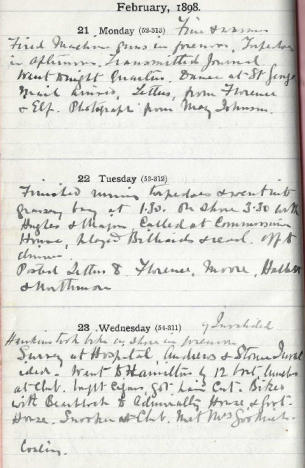 February, 1898.
21 Monday (52-313) Fine & warm
Fired Machine guns in forenoon, Torpedoes
in afternoon. Transmitted Journal
Went Night Quarters. Dance at St George
Mail arrived, Letters, from Florence
& Elf. Photograph from May Johnson.
22 Tuesday (53-312)
Finished running torpedoes & went into
grassy bay at 1.30. On shore 3.30 with
Hughes & Major Called at Commissioner
House, played Billiards & off to
dinner.
Posted Letters to Florence, Moore,
&
23 Wednesday (54-311)
Hawkins took bike on shore in forenoon
Survey at Hospital, Andrews & Stone Invalided
Went to Hamilton by 12 boat lunched
at Club. Bike
with to Admiralty House &
House. Snooker at Club. Met Mrs
Coaling.